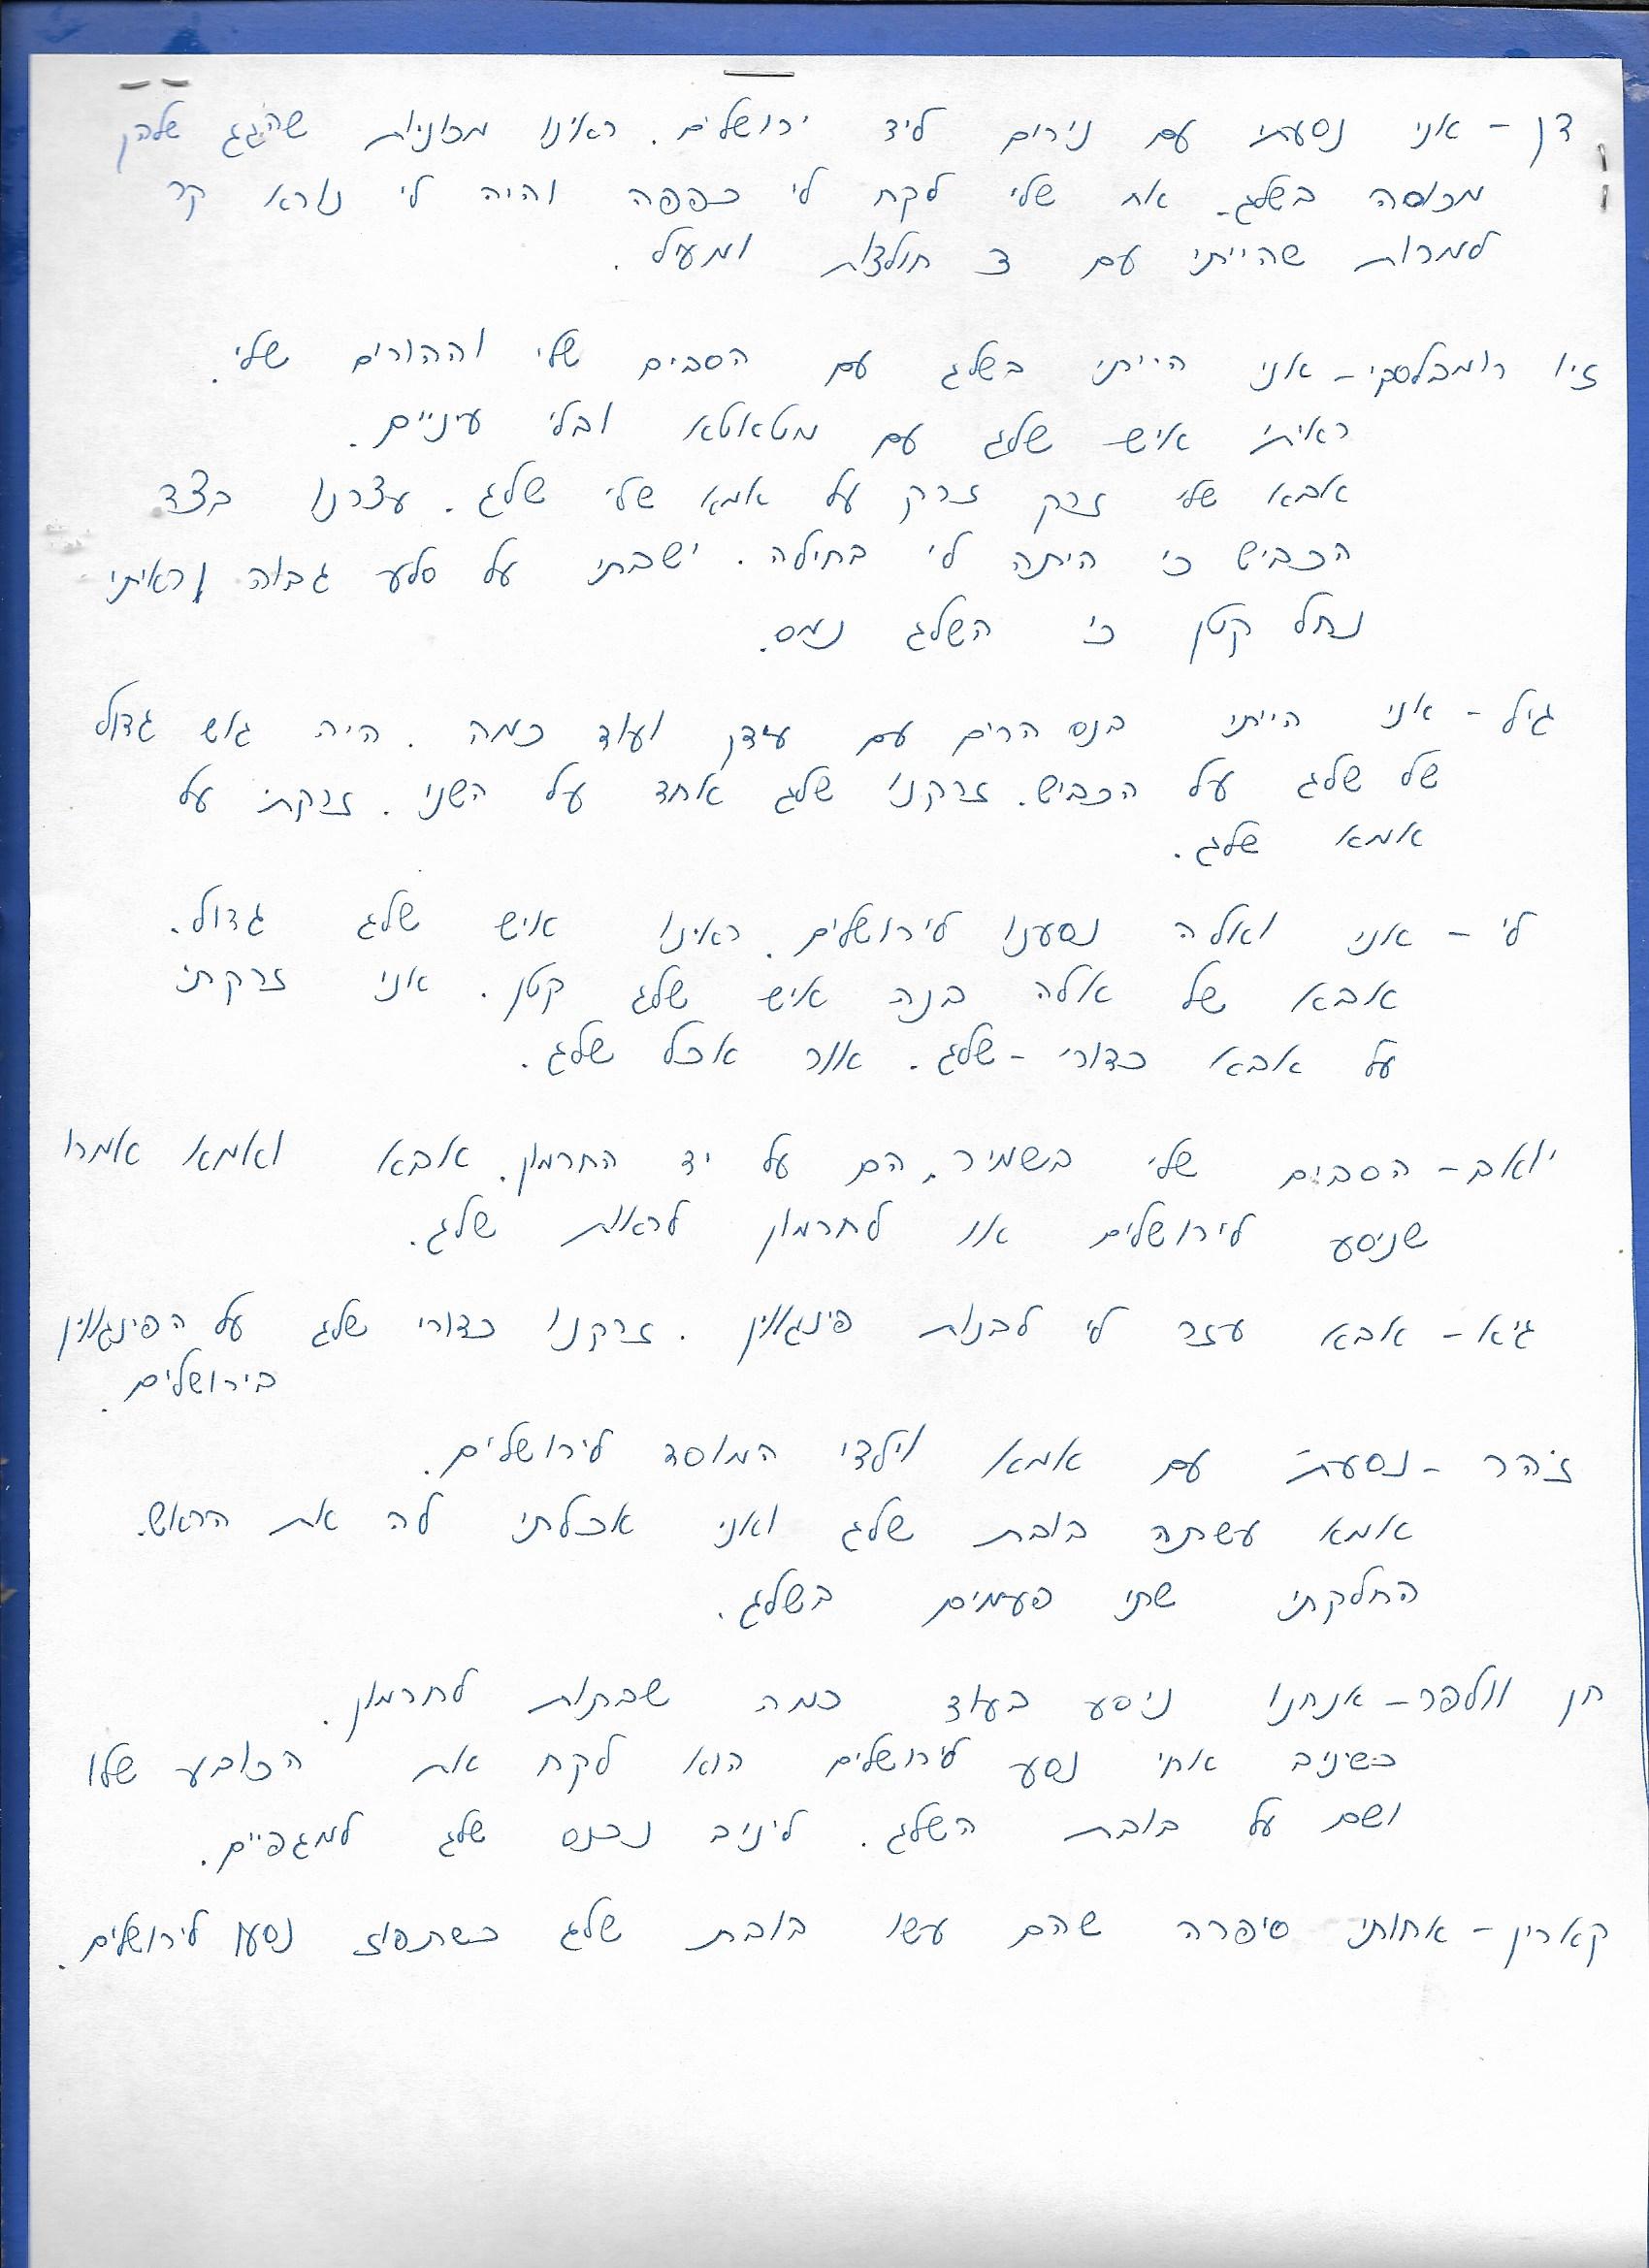 דן - אני נסעתי עם נירום ליד ירושלים. ראינו מכוניות שהגג שלהן
מכוסה בשלג. אח שלי לקח לי כפפה והיה לי נורא קר
למרות שהייתי עם 3 חולצות ומעיל.
זיו רומבלסקי - אני הייתי בשלג עם הסבים שלי וההורים שלי.
ראיתי איש שלג עם מטאטא ובלי עיניים.
אבא שלי זרק זרק על אמא שלי שלג. עצרנו בצד
הכביש כי היתה לי בחילה. ישבתי על סלע גבוה וראיתי
נחל קטן כי השלג נמס.
גיל - אני הייתי בנס הרים עם עידן ועוד כמה. היה גוש גדול
של שלג על הכביש. זרקנו שלג אחד על השני. זרקתי על
אמא שלג.
לי - אני ואלה נסענו לירושלים. ראינו איש שלג גדול.
אבא של אלה בנה איש שלג קטן. אני זרקתי
על אבא כדורי - שלג. אור אכל שלג.
יואב - הסבים שלי בשמיר, הם על יד החרמון. אבא ואמא אמרו
שניסע לירושלים או לחרמון לראות שלג.
גיא - אבא עזר לי לבנות פינגווין. זרקנו כדורי שלג על הפינגווין
בירושלים.
זהר - נסעתי עם אמא וילדי המוסד לירושלים.
אמא עשתה בובת שלג ואני אכלתי לה את הראש.
החלקתי שתי פעמים בשלג.
חן וולפר - אנחנו ניסע בעוד כמה שבתות לחרמון.
כשיניב אחי נסע לירושלים הוא לקח את הכובע שלו
ושם על בובת השלג. ליניב נכנס שלג למגפיים.
קארין - אחותי סיפרה שהם עשו בובת שלג כשתפוז נסעו לירושלים.